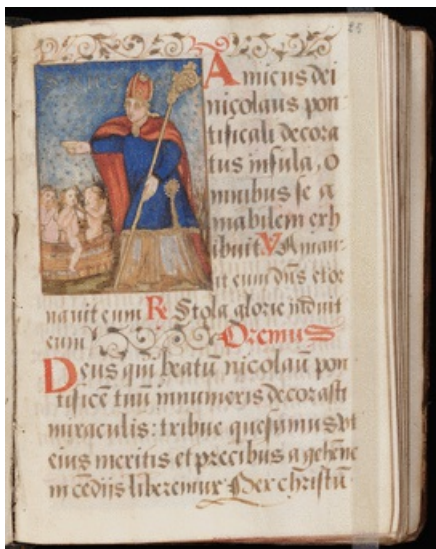 25
Amicus dei
nicolaus pon
tificali decora
tus insula. O
mnibus se a
mabilem exh
ibuit V Amau-
it eum dns etor
nauit eum R Stola glorie induit
eum Oremus
Deus qui beatū nicolaū pon
tificē tuū innumeris decorasti
miraculis: tribue quesumus vt
eius meritis et precibus a gehēne
incēdijs liberemur Per christū